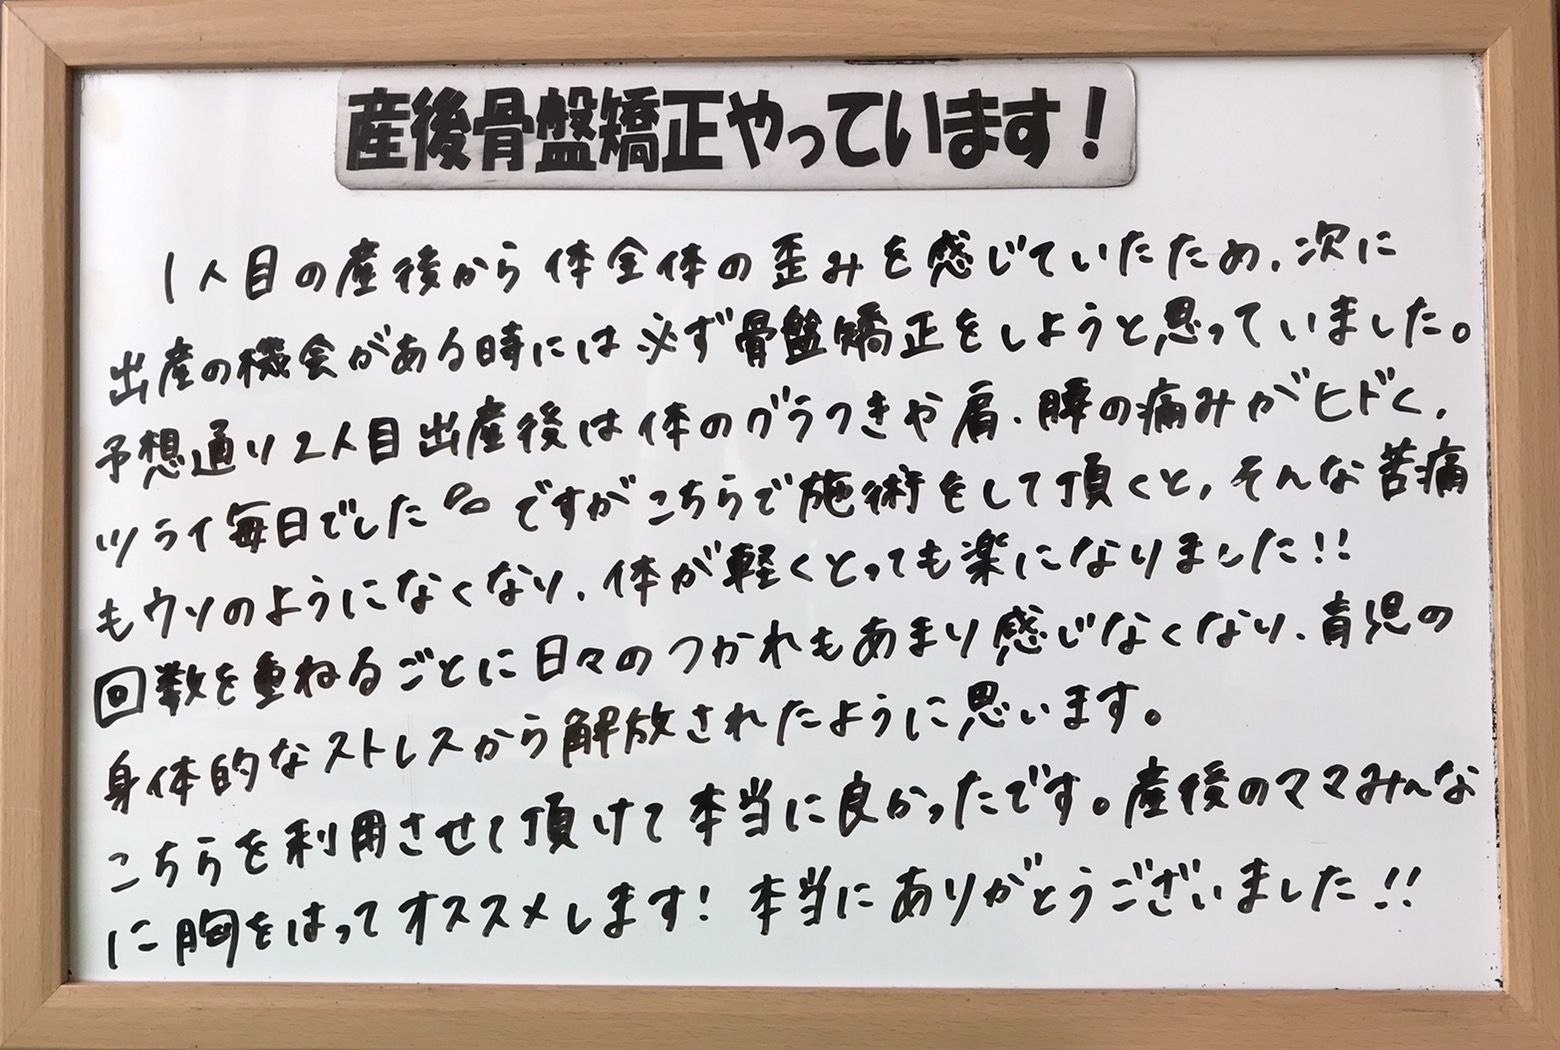 産後骨盤矯正やっています!
1人目の産後から体全体の歪みを感じていたため、次に
出産の機会がある時には必ず骨盤矯正をしようと思っていました。
予想通り2人目出産後は体のグラつきや肩、腰の痛みがヒドく、
ツライ毎日でした ですがこちらで施術をして頂くと、そんな苦痛
もウソのようになくなり、体が軽くとっても楽になりました!!
回数を重ねるごとに日々のつかれもあまり感じなくなり、育児の
身体的なストレスから解放されたように思います。
こちらを利用させて頂けて本当に良かったです。産後のママみんな
に胸をはってオススメします! 本当にありがとうございました!!